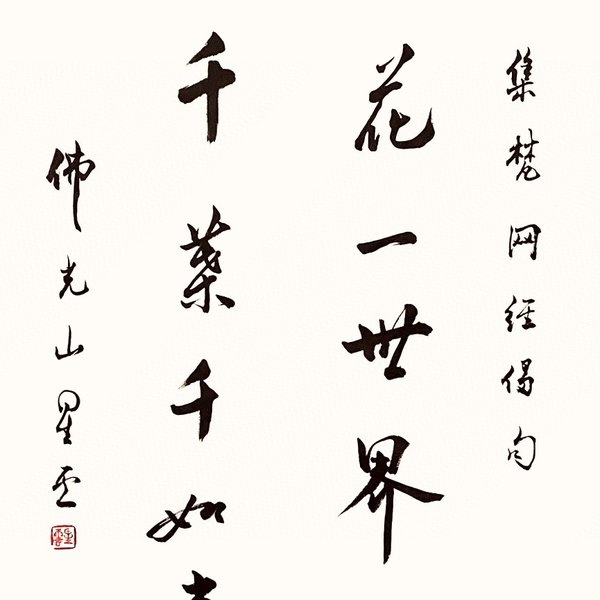 集梵网经偈句
花一世界
千葉千如
佛光山星云
星雲